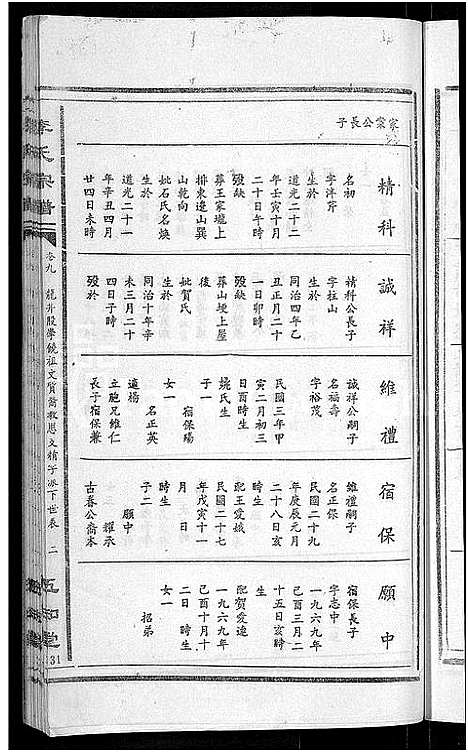 家棠公長子
精科
名初
字洋芹
生於
道光二十二
年壬寅十月
二十日午時
歿缺
葬王家壠上
排東邊山巽
山乾向
妣石氏名煥
生於
道光二十一
年辛丑四月
廿四日未時
誠祥
精科公長子
字柱山
生於
同治四年乙
丑正月二十
一日卯時
歿缺
葬山埂上屋
後
妣賀氏
生於
同治十年辛
未三月二十
四日子時
歿於
維禮
誠祥公嗣子
名福壽
字裕茂
民國三年甲
寅二月初三
日酉時生
娆氏生
子一
宿保殤
女一
名正英
適楊
立胞兄維仁
長子宿保兼
宿保
維禮嗣子
名正保
民國二十九
年庚辰元月
二十八日亥
時生
配王愛娥
民國二十七
年戊寅十一
月 日
時生
子二
願中
耀承
古春公裔本
願中
宿保長子
字志中
一九六九年
己酉三月二
十五日亥時
生
配賀愛逵
一九六九年
己酉十月十
二日 時生
女一
招弟
李氏宗譜
卷九
二
五和堂
31